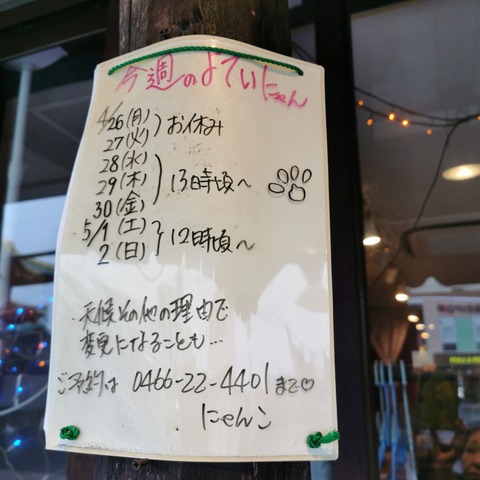 今週のよていにゃん
4/26(月)
27(火)
お休み
28(水)
29(木)
30(金)
13時頃〜
5/1(土)
2(日)
12時頃〜
天候その他の理由で
変更になることも...
ご予約は 0466-22-4401まで♡
にゃんこ